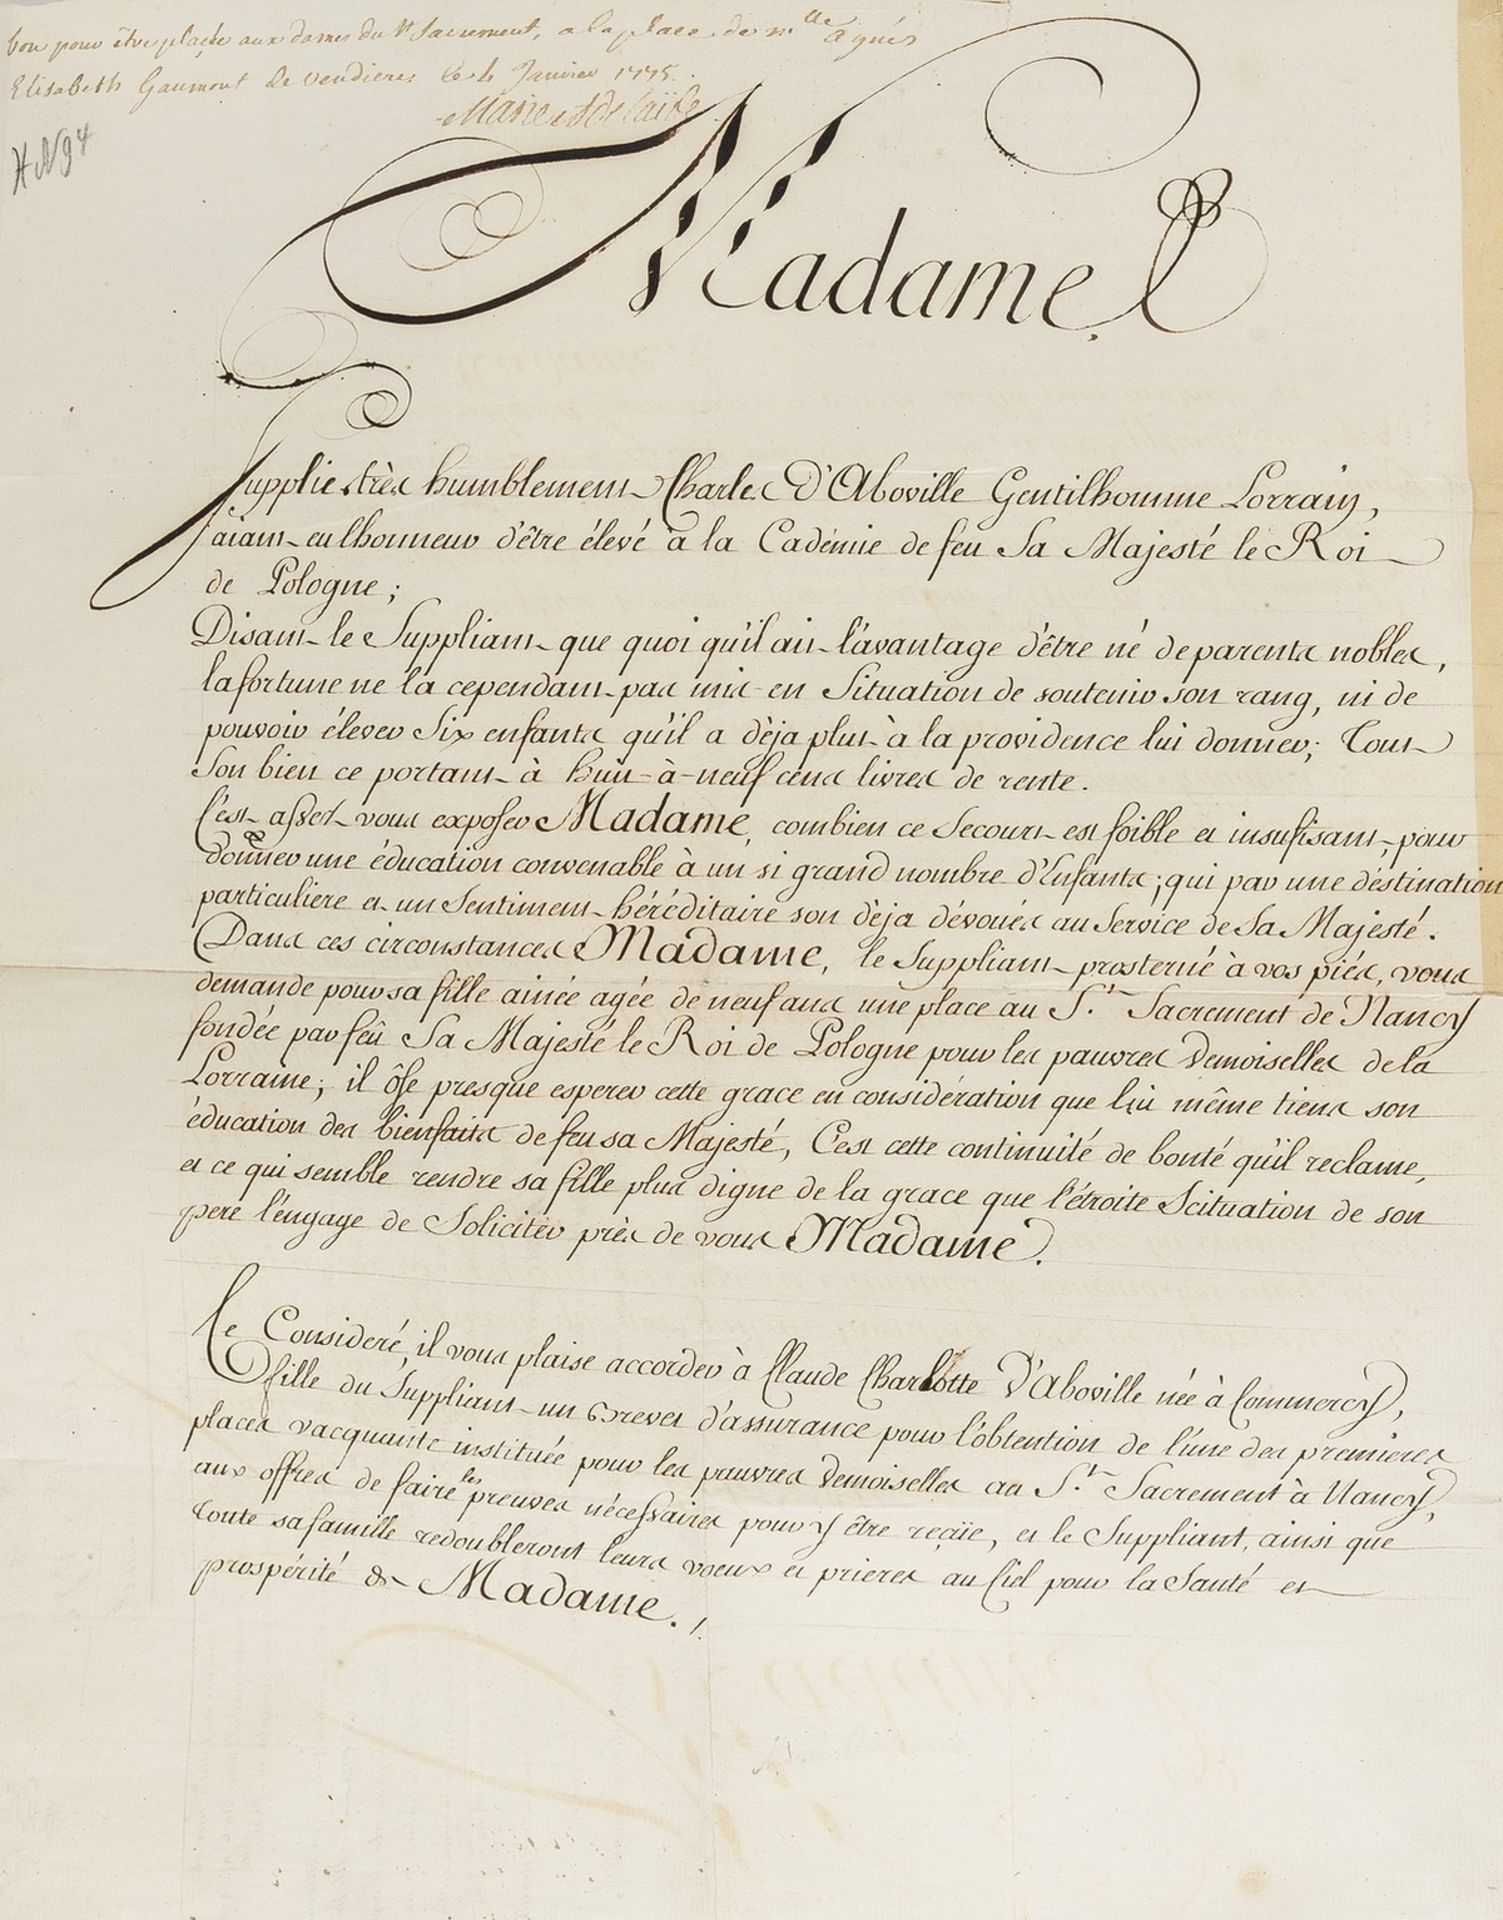 bon pour être placée aux dames du St Sacrement, a la place de mlle agnés
Elisabeth Gaumont de Vendieres le 4 Janvier 1775.
Marie Adelaïde
HN94
Madame
Supplie très humblement Charles D'Aboville Gentilhomme Lorrain,
aiant eu lhonneur d'être élevé à la Cadémie de feu Sa Majesté le Roi
de Pologne;
Disant le Suppliant que quoi qu'il ait l'avantage d'être né de parents nobles,
la fortune ne la cependant pas mis en Situation de soutenir son rang, ni de
pouvoir élever Six enfants qu'il a dèja plut à la providence lui donner; Tout
Son bien ce portant à huit à neuf cens livres de rente.
C'est assez vous exposer Madame, combien ce Secourt est foible et insufisant, pour
donner une éducation convenable à un si grand nombre d'Enfants; qui par une déstination
particuliere et un Sentiment héréditaire son dèja dévoués au Service de Sa Majesté.
Dans ces circonstances Madame, le Suppliant prosterné à vos piés, vous
demande pour sa fille ainée agée de neuf ans une place au St. Sacrement de Nancy
fondée par feû Sa Majesté le Roi de Pologne pour les pauvres Demoiselles de la
Lorraine; il ôse presque esperer cette grace en considération que lui même tient son
éducation des bienfaits de feu sa Majesté, C'est cette continuité de bonté qu'il reclame,
et ce qui semble rendre sa fille plus digne de la grace que l'étroite Scituation de son
pere l'engage de Soliciter près de vous Madame.
Ce Consideré, il vous plaise accorder à Claude Charlotte D'Aboville née à Commercy,
fille du Suppliant un Brevet d'assurance pour l'obtention de l'une des premieres
places vacquante instituée pour les pauvres Demoiselles au St. Sacrement à Nancy,
aux offres de faire les preuves nécessaires pour y être reçüe, et le Suppliant, ainsi que
toute sa famille redoubleront leurs voeux et prieres au Ciel pour la Santé et
prospérité de Madame./.